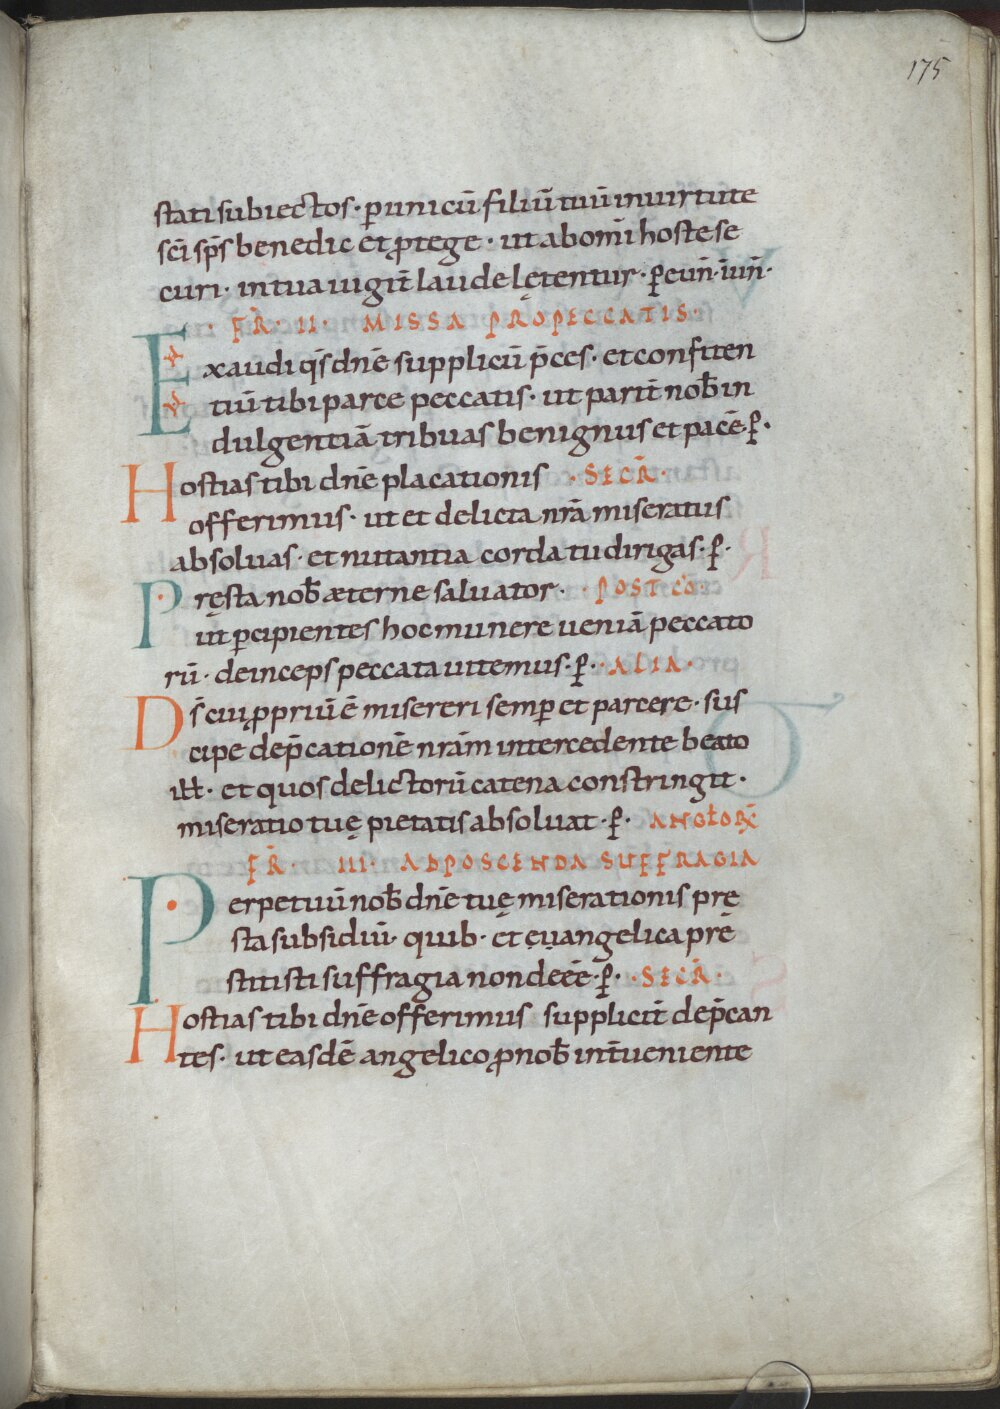 175
stati subiectos · p̄ unicū filiū tuū in uirtute
sc̄i sp̄s benedic et ꝓtege · ut ab om̄i hoste se
curi · in tua iugit̄ laude lętentur · p̄ eun̄ · iun̄ ·
· FR̄ · II · MISSA PRO PECCATIS ·
Exaudi q̄s dn̄e supplicū p̄ces · et confiten
tiū tibi parce peccatis · ut parit̄ nob̄ in
dulgentiā tribuas benignus et pacē · p̄ ·
Hostias tibi dn̄e placationis · SECR̄ ·
offerimus · ut et delicta nr̄a miseratus
absoluas · et nutantia corda tu dirigas · p̄ ·
Pręsta nob̄ æterne saluator · · POST CŌ ·
ut p̄cipientes hoc munere ueniā peccato
rū · deinceps peccata uitemus · p̄ · · ALIA ·
Ds̄ cui ꝓpriū ē misereri semp̄ et parcere · sus
cipe dep̄cationē nrām intercedente beato
ill̄ · et quos delictorū catena constringit ·
miseratio tuę pietatis absoluat · p̄ · ANGLOR̄
FR̄ · III · AD POSCENDA SUFFRAGIA
Perpetuū nob̄ dn̄e tuę miserationis prę
sta subsidiū · quib · et ęuangelica prę
stitisti suffragia non deeē · p̄ · · SECR̄ ·
Hostias tibi dn̄e offerimus supplicit̄ dep̄can
tes · ut easdē angelico ꝓ nob̄ int̄ueniente